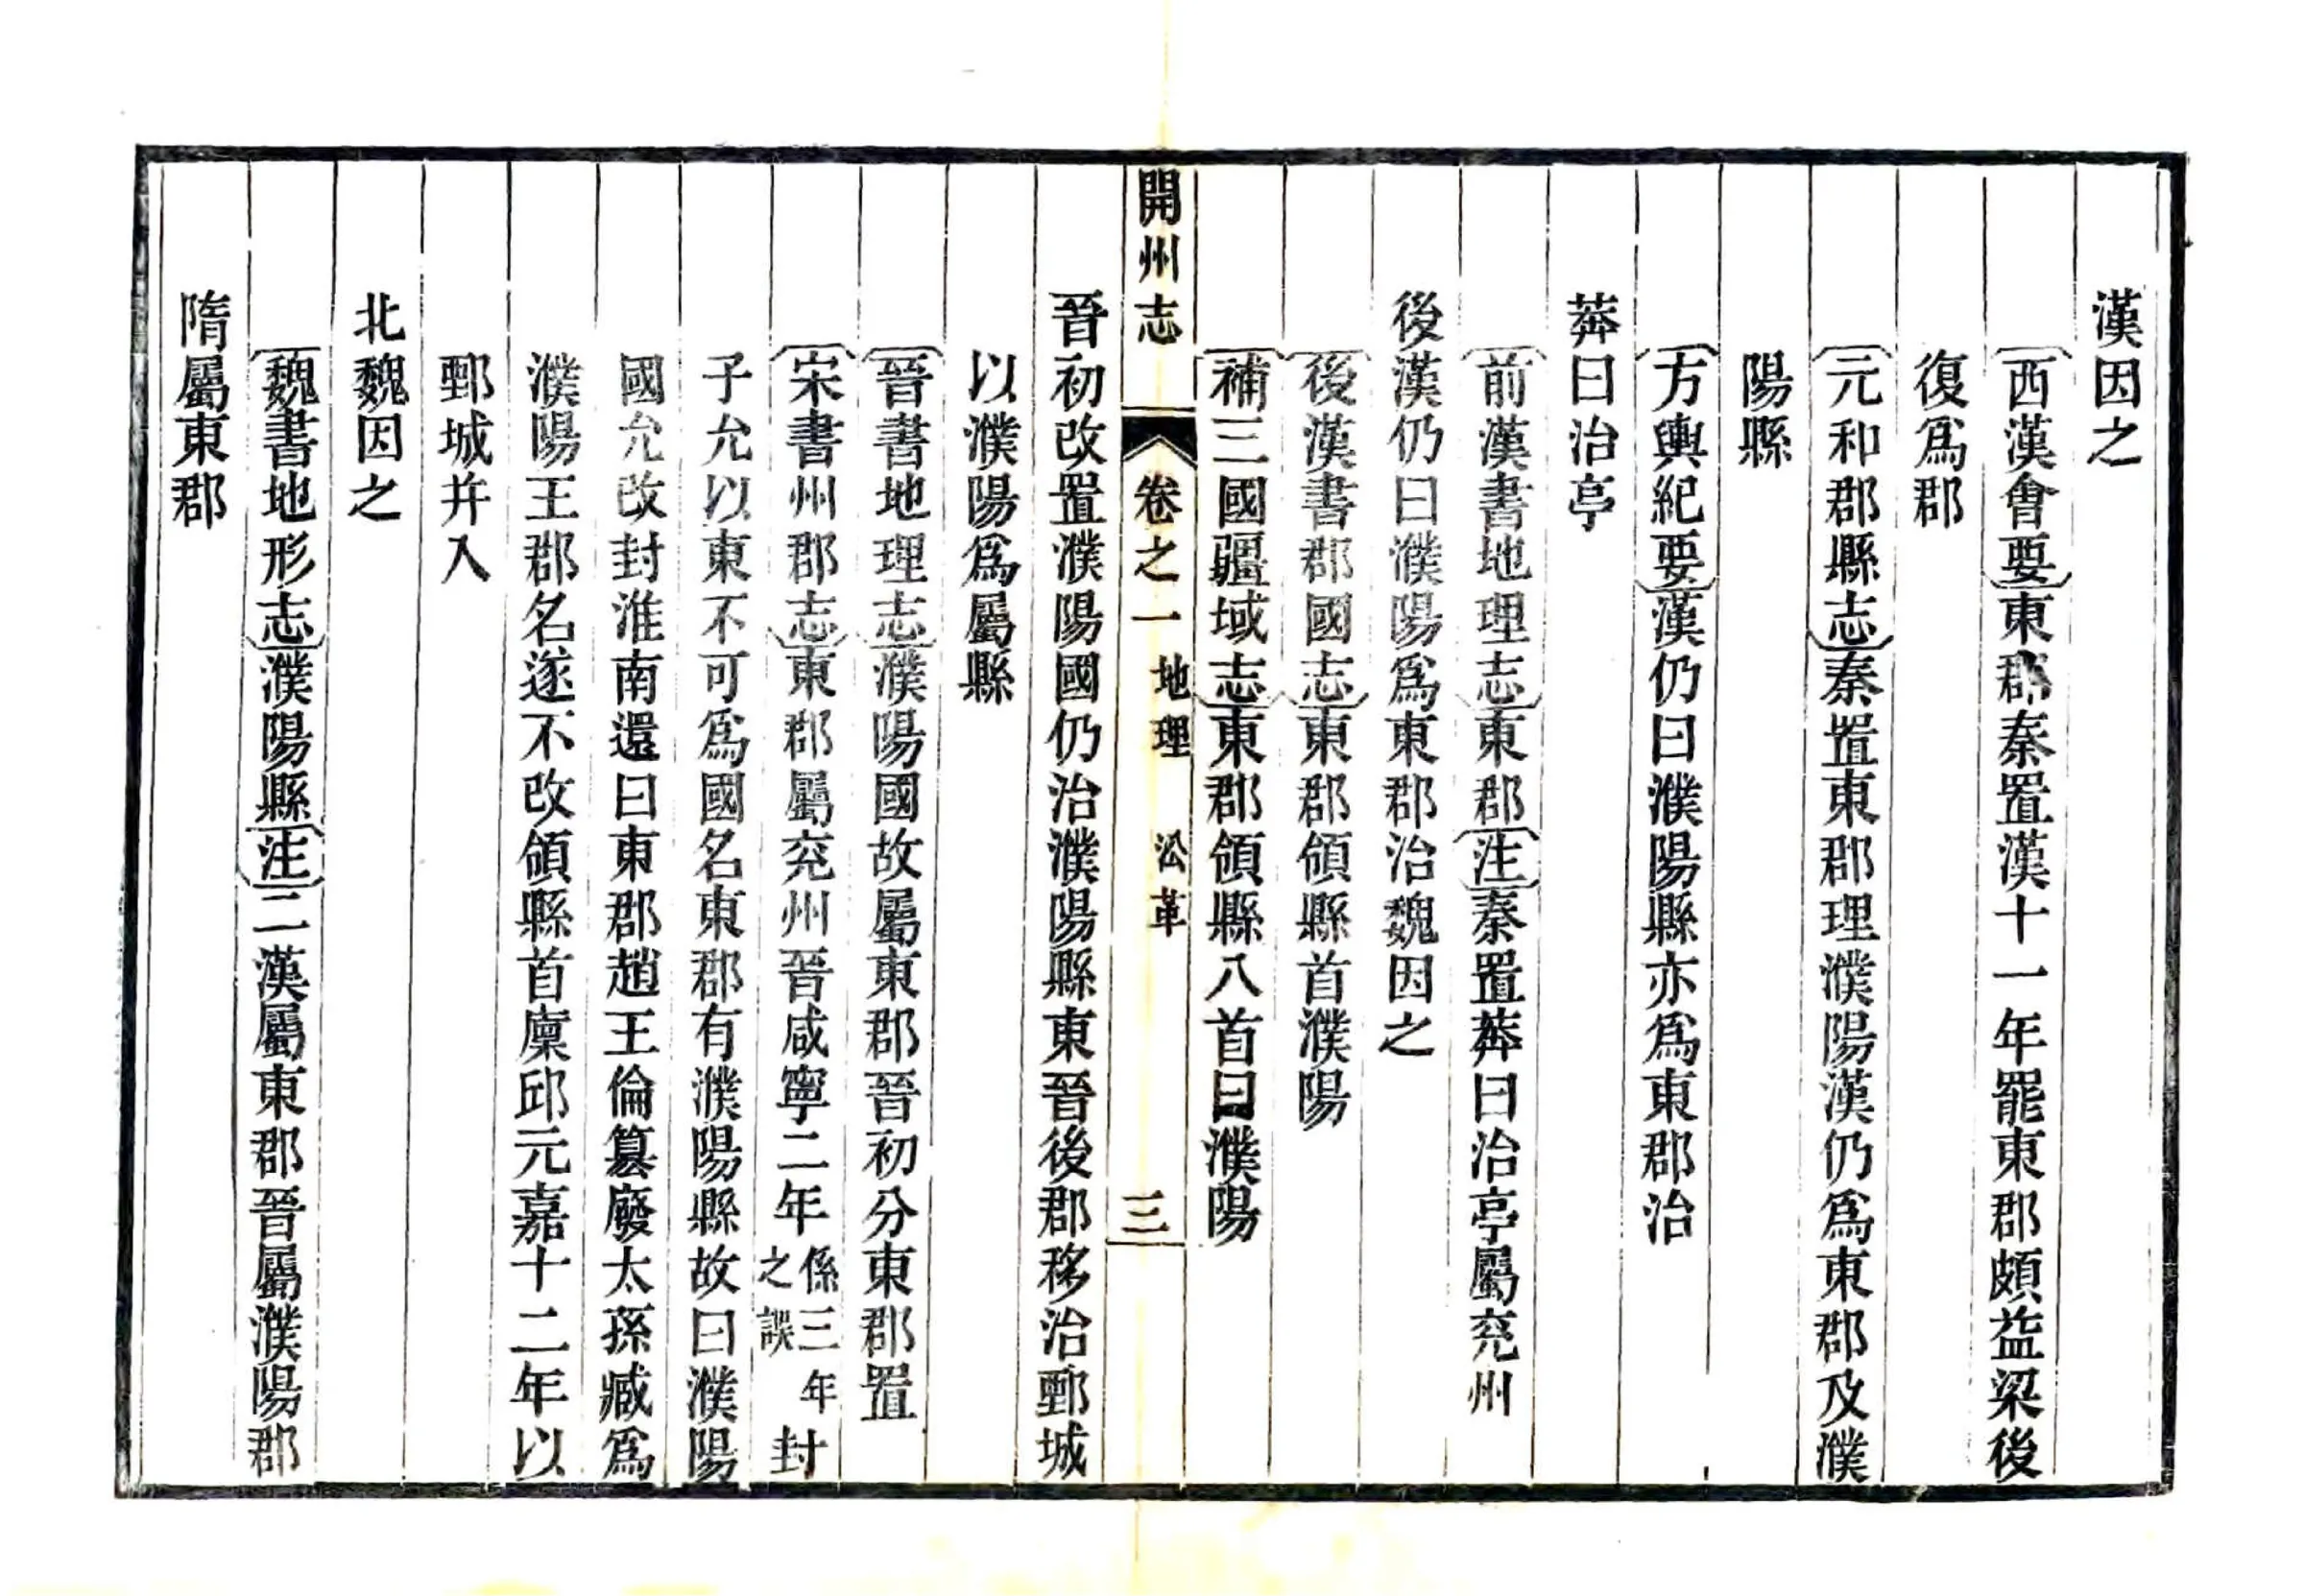 漢因之
西漢會要東郡秦置漢十一年罷東郡頗益梁後
復爲郡
元和郡縣志秦置東郡理濮陽漢仍爲東郡及濮
陽縣
方輿紀要漢仍曰濮陽縣亦爲東郡治
莽曰治亭
前漢書地理志東郡注秦置莽曰治亭屬兖州
後漢仍曰濮陽爲東郡治魏因之
後漢書郡國志東郡領縣首濮陽
補三國疆域志東郡領縣八首曰濮陽
開州志 卷之一 地理 沿革 三
晉初改置濮陽國仍治濮陽縣東晉後郡移治鄄城
以濮陽爲屬縣
晉書地理志濮陽國故屬東郡晉初分東郡置
宋書州郡志東郡屬兖州晉咸寧二年係三年之誤封
子允以東不可爲國名東郡有濮陽縣故曰濮陽
國允改封淮南還曰東郡趙王倫篡廢太孫臧爲
濮陽王郡名遂不改領縣首廩邱元嘉十二年以
鄄城并入
北魏因之
魏書地形志濮陽縣注二漢屬東郡晉屬濮陽郡
隋屬東郡